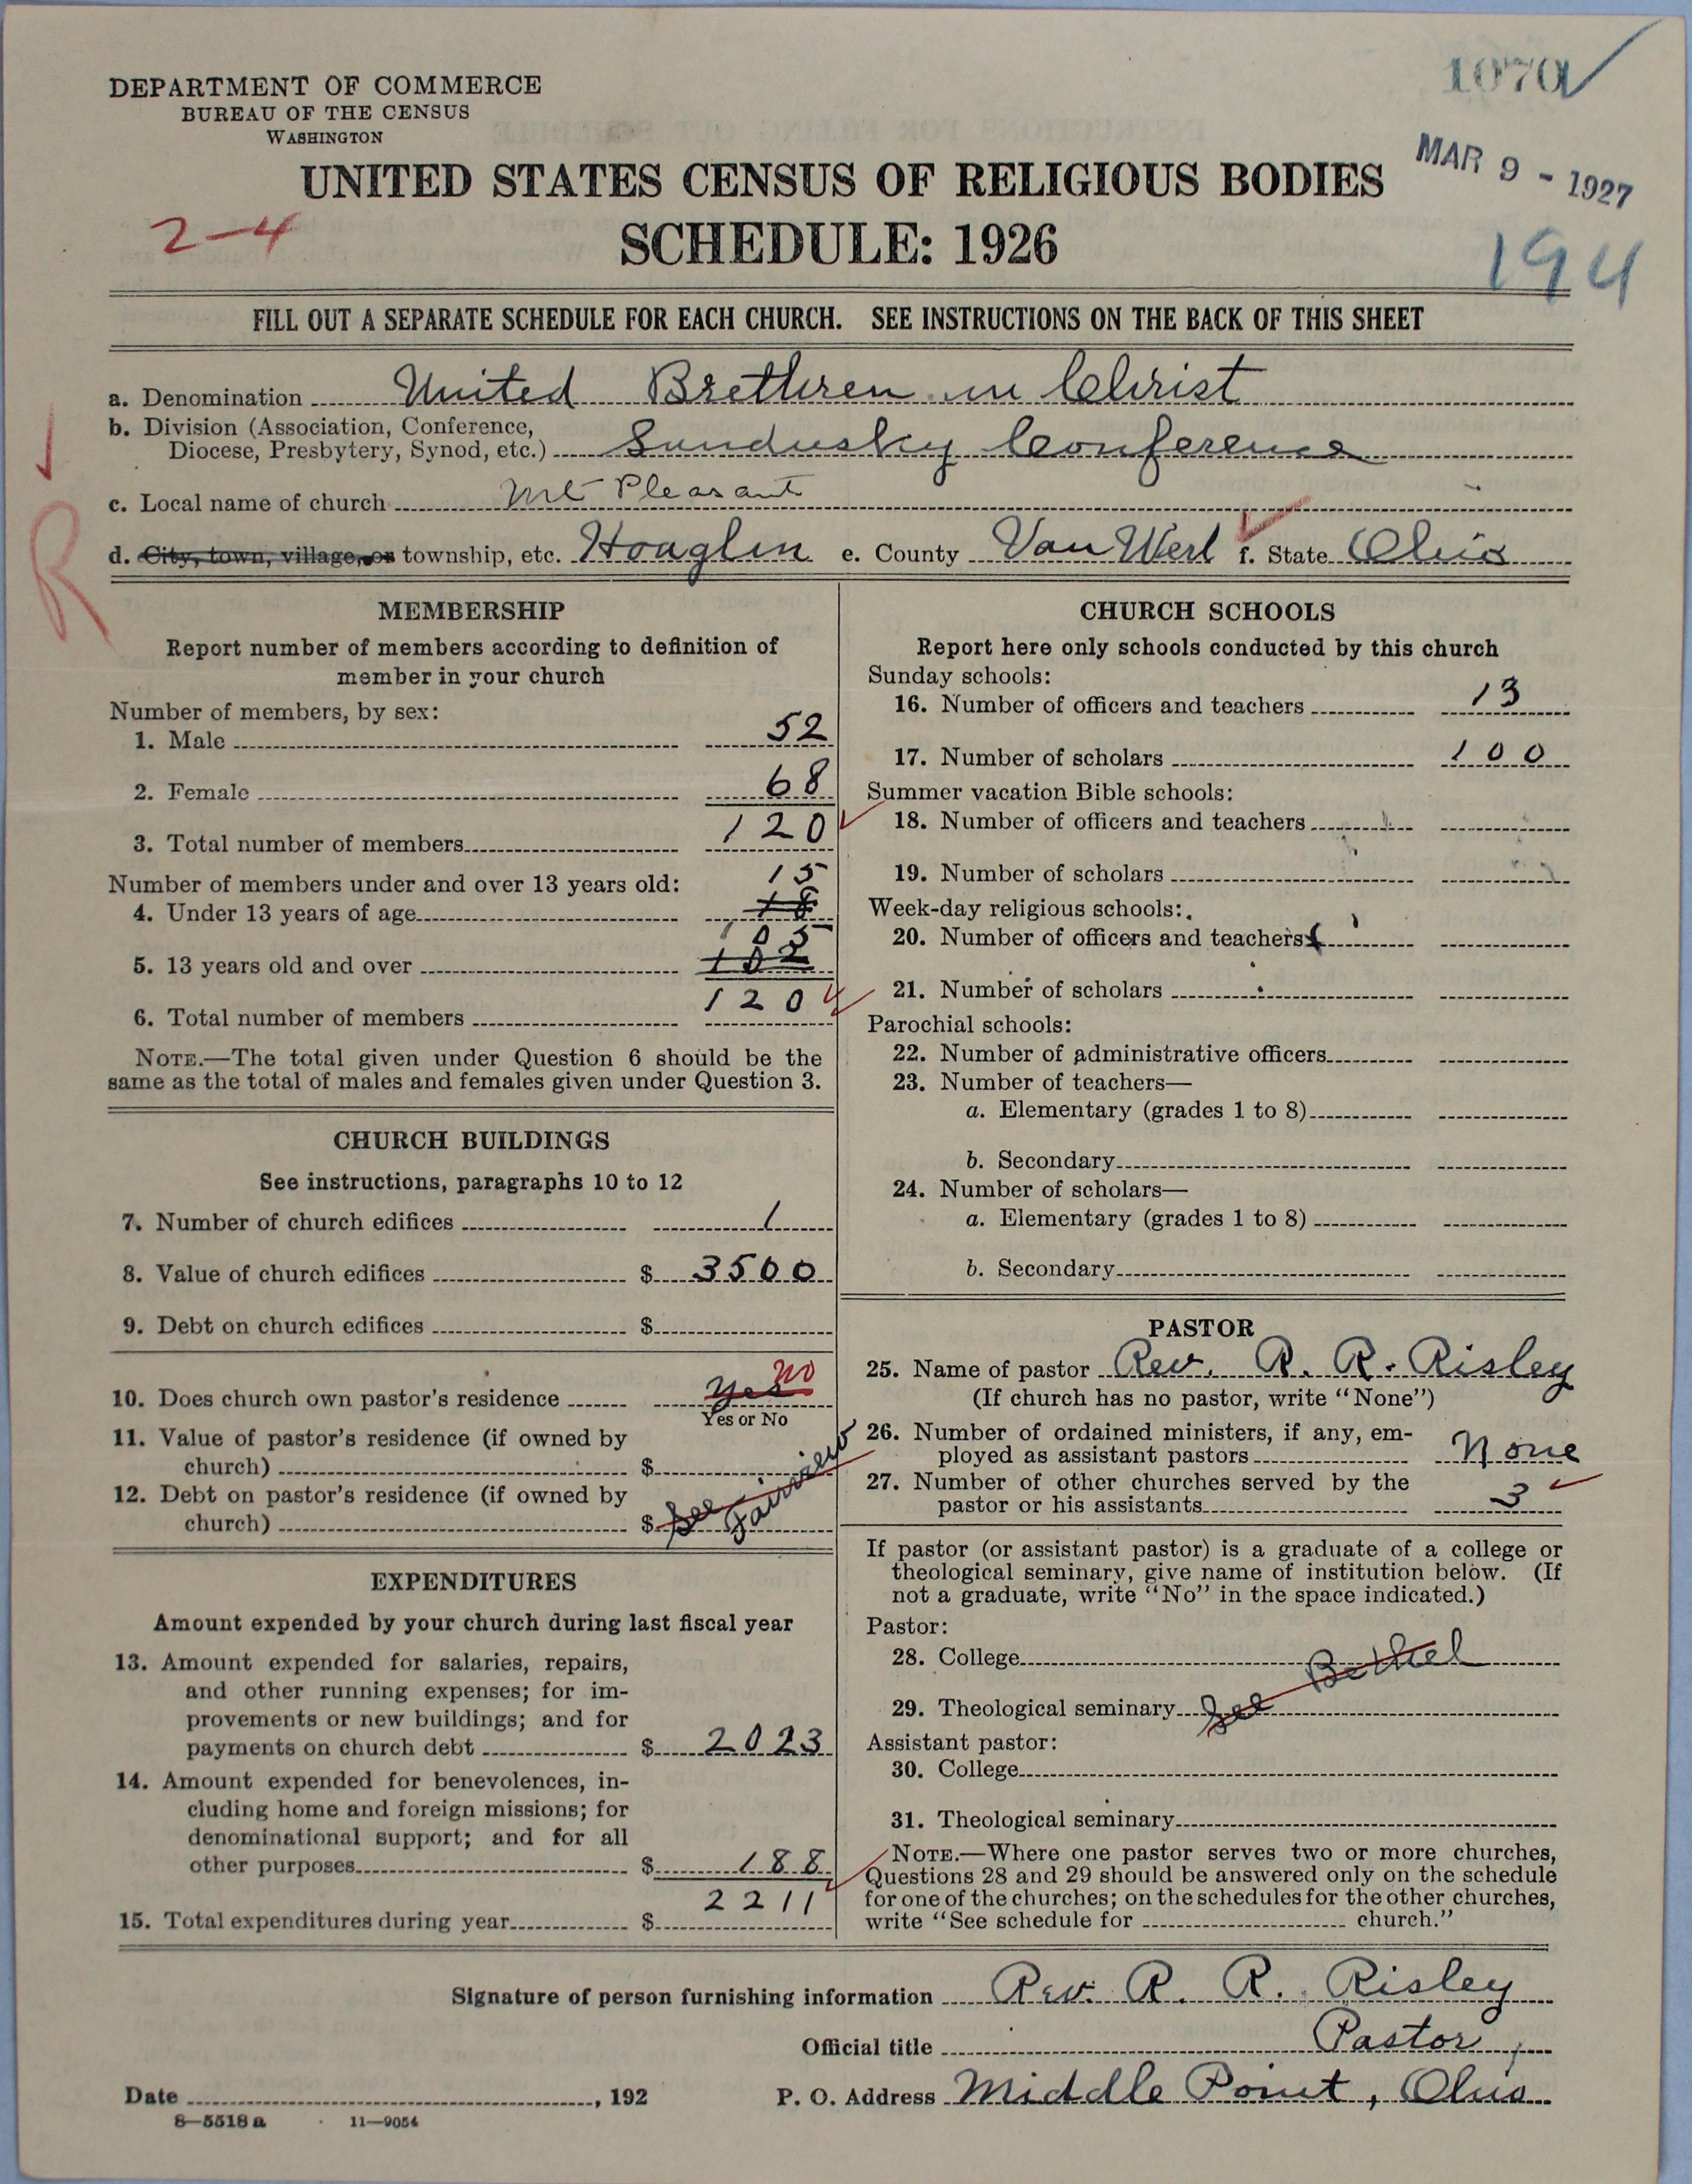 1070
DEPARTMENT OF COMMERCE
BUREAU OF THE CENSUS
WASHINGTON
MAR 9 - 1927
UNITED STATES CENSUS OF RELIGIOUS BODIES
2-4
SCHEDULE: 1926
194
FILL OUT A SEPARATE SCHEDULE FOR EACH CHURCH. SEE INSTRUCTIONS ON THE BACK OF THIS SHEET
a. Denomination United Brethren in Christ
b. Division (Association, Conference,
Diocese, Presbytery, Synod, etc.) Sandusky Conference
c. Local name of church Mt Pleasant
R
d. City, town, village, or township, etc. Hoaglin e. County Van Wert f. State Ohio
MEMBERSHIP
Report number of members according to definition of
member in your church
Number of members, by sex:
1. Male 52
2. Female 68
3. Total number of members 120
Number of members under and over 13 years old: 15
4. Under 13 years of age 18
105
5. 13 years old and over 102
6. Total number of members 120
NOTE.—The total given under Question 6 should be the
same as the total of males and females given under Question 3.
CHURCH BUILDINGS
See instructions, paragraphs 10 to 12
7. Number of church edifices 1
8. Value of church edifices $ 3500
9. Debt on church edifices $
10. Does church own pastor's residence Yes no
Yes or No
11. Value of pastor's residence (if owned by
church) $
12. Debt on pastor's residence (if owned by
church) $ See Fairview
EXPENDITURES
Amount expended by your church during last fiscal year
13. Amount expended for salaries, repairs,
and other running expenses; for im-
provements or new buildings; and for
payments on church debt $ 2023
14. Amount expended for benevolences, in-
cluding home and foreign missions; for
denominational support; and for all
other purposes $ 188
15. Total expenditures during year $ 2211
CHURCH SCHOOLS
Report here only schools conducted by this church
Sunday schools:
16. Number of officers and teachers 13
17. Number of scholars 100
Summer vacation Bible schools:
18. Number of officers and teachers
19. Number of scholars
Week-day religious schools:
20. Number of officers and teachers
21. Number of scholars
Parochial schools:
22. Number of administrative officers
23. Number of teachers—
a. Elementary (grades 1 to 8)
b. Secondary
24. Number of scholars—
a. Elementary (grades 1 to 8)
b. Secondary
PASTOR
25. Name of pastor Rev. R. R. Risley
(If church has no pastor, write "None")
26. Number of ordained ministers, if any, em-
ployed as assistant pastors None
27. Number of other churches served by the
pastor or his assistants 3
If pastor (or assistant pastor) is a graduate of a college or
theological seminary, give name of institution below. (If
not a graduate, write "No" in the space indicated.)
Pastor:
28. College
29. Theological seminary See Bethel
Assistant pastor:
30. College
31. Theological seminary
NOTE.—Where one pastor serves two or more churches,
Questions 28 and 29 should be answered only on the schedule
for one of the churches; on the schedules for the other churches,
write "See schedule for church."
Signature of person furnishing information Rev. R. R. Risley
Official title Pastor,
Date , 192
P. O. Address Middle Point, Ohio
8—5518 a 11—9054